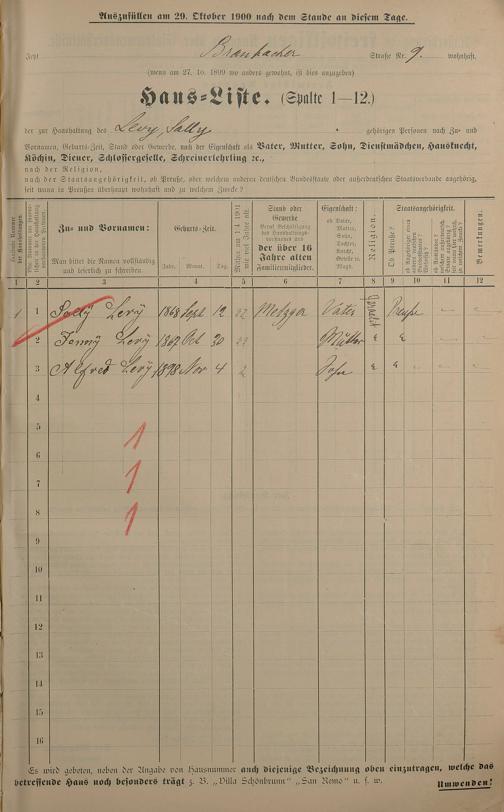 Auszufüllen am 29. Oktober 1900 nach dem Stande an diesem Tage.
Jetzt Braubacher Straße Nr. 9. wohnhaft.
(wenn am 27. 10. 1899 wo anders gewohnt, ist dies anzugeben)
Haus-Liste. (Spalte 1—12.)
der zur Haushaltung des Levy, Sally gehörigen Personen nach Zu- und
Vornamen, Geburts-Zeit, Stand oder Gewerbe, nach der Eigenschaft als Vater, Mutter, Sohn, Dienstmädchen, Hausknecht,
Köchin, Diener, Schlossergeselle, Schreinerlehrling ꝛc.,
nach der Religion,
nach der Staatsangehörigkeit, ob Preuße, oder welchem anderen deutschen Bundesstaate oder außerdeutschen Staatsverbande angehörig,
seit wann in Preußen überhaupt wohnhaft und zu welchem Zwecke?
Zu- und Vornamen:
Man bittet die Namen vollständig
und leserlich zu schreiben.
Geburts-Zeit.
Jahr. Monat. Tag.
Mithin am 1/4 1901
wie viel Jahre alt.
Stand oder
Gewerbe
der über 16
Jahre alten
Familienmitglieder.
Eigenschaft:
ob Vater,
Mutter,
Sohn,
Tochter,
Knecht,
Geselle
Magd.
Religion.
Staatsangehörigkeit.
Ob Preuße?
Bemerkungen.
1 2 3 4 5 6 7 8 9 10 11 12
1 1 Sally Levy 1868 Sept 12 32 Metzger Vater Israelit Preuße
2 Jenny Levy 1867 Oct 30 33 Mutter " "
3 Alfred Levy 1898 Nov 4 2 Sohn " "
4
5
1
6
7
1
8
1
9
10
11
12
13
14
15
16
Es wird gebeten, neben der Angabe von Hausnummer auch diejenige Bezeichnung oben einzutragen, welche das
betreffende Haus noch besonders trägt z. B. „Villa Schönbrunn" „San Remo" u. s. w.
Umwenden!